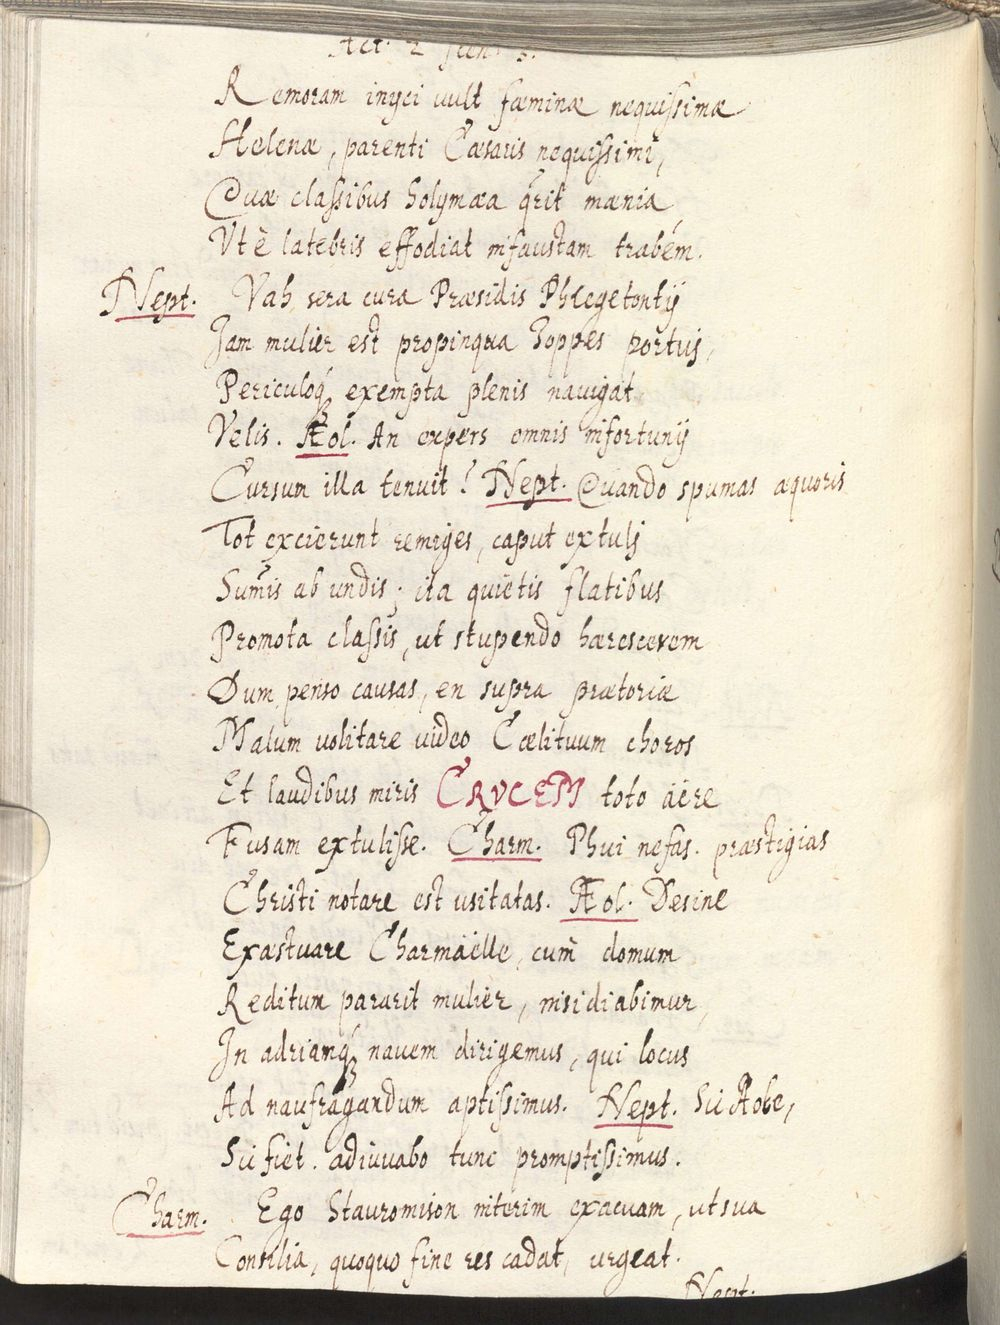 Act. 2 scen. 3.
Remoram inijci vult fæminæ nequissimæ
Helenæ, parenti Cæsaris nequissimi,
Quæ classibus Solymæa q̃rit mænia
Vt è latebris effodiat infaustam trabem.
Nept. Vah sera cura Præsidis Phlegetontij
Jam mulier est propinqua Joppes portui,
Periculoq́ʒ exempta plenis navigat
Velis. Æol. An expers omnis infortunij
Cursum illa tenuit? Nept. Quando spumas æquoris
Tot excierunt remiges, caput extulj
Sum̃is ab undis; ita quiëtis flatibus
Promota classis, ut stupendo hærescerem
Dum penso causas, en supra prætoriæ
Malum volitare video Cælituum choros
Et laudibus miris CRVCEM toto äëre
Fusam extulisse. Charm. Phui nefas. præstigias
Christi notare est usitatas. Æol. Desine
Exæstuare Charmäelle, cum domum
Reditum pararit mulier, insidiabimur,
In adriamq́ʒ navem dirigemus, qui locus
Ad naufragandum aptissimus. Nept. Sic Æole,
Sic fiet. adiuvabo tunc promptissimus.
Charm. Ego Stauromison interim exacuam, ut sua
Consilia, quoquo fine res cadat, urgeat.
Nept.